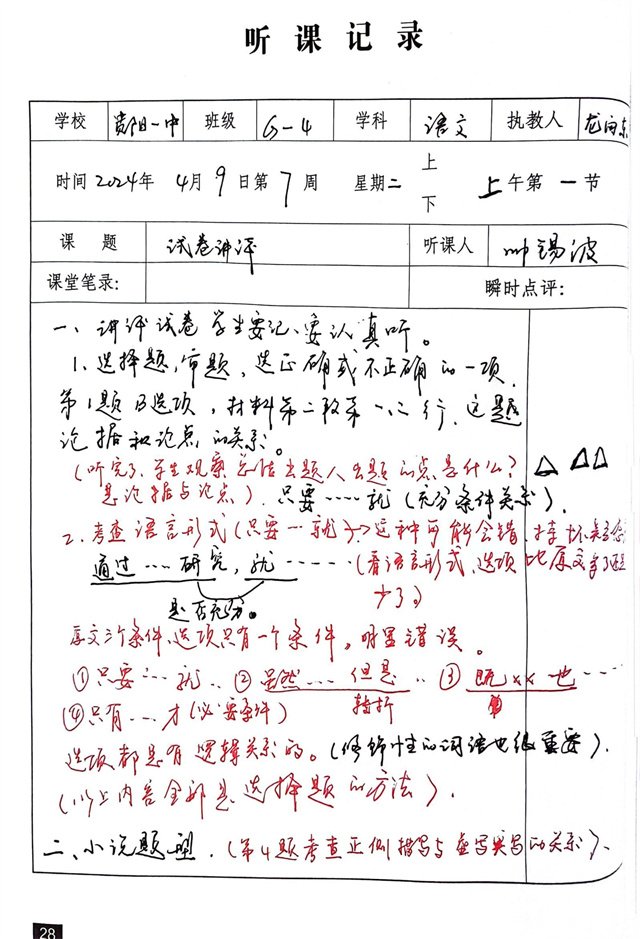 听课记录
学校 贵阳一中 班级 G-4 学科 语文 执教人 龙
时间 2024年 4月 9日第 7 周 星期二 上 下 上午第 一 节
课 题 试卷讲评 听课人 帅锡波
课堂笔录: 瞬时点评:
一、讲评试卷 学生要记、要认真听。
1、选择题,审题,选正确或不正确的一项,
第1题B选项,材料第二段第一、二行,这题
论据和论点的关系。
(听完了,学生观察总结出题人出题的点是什么? △ △△
是论据与论点)。只要……就(充分条件关系)。
2、考查语言形式(只要…就)→这种可能会错,
通过…研究,就……(看语言形式,选项比原文多了还是
少了。)
是否充分。
原文三个条件,选项只有一个条件。明显错误。
①只要…就.. ②虽然…但是.. ③既××也……
转折
④只有…才(必要条件)
选项都是有逻辑关系的。(修饰性的词语也很重要)。
(以上内容全部是选择题的方法)。
二、小说题型.(第4题考查正侧描写与虚写实写的关系)、
28